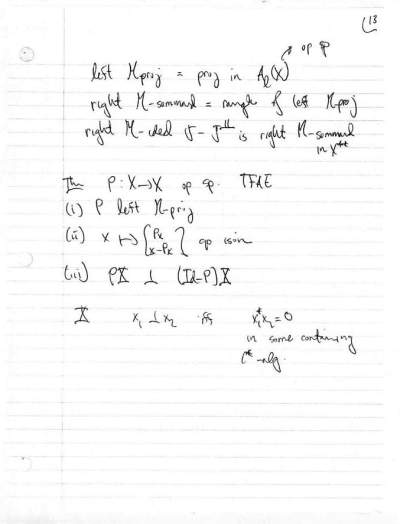 13
op sp
left M proj = proj in Aℓ(X)
right M-summand = range of left M proj
right M-ideal J - J^⊥⊥ is right M-summand
in X**
Thm P: X→X op sp. TFAE
(i) P left M-proj
(ii) x ↦ [Px x-Px] op isom
(iii) PX ⊥ (Id-P)X
X x₁ ⊥ x₂ iff x₁*x₂=0
in some containing
C*-alg.